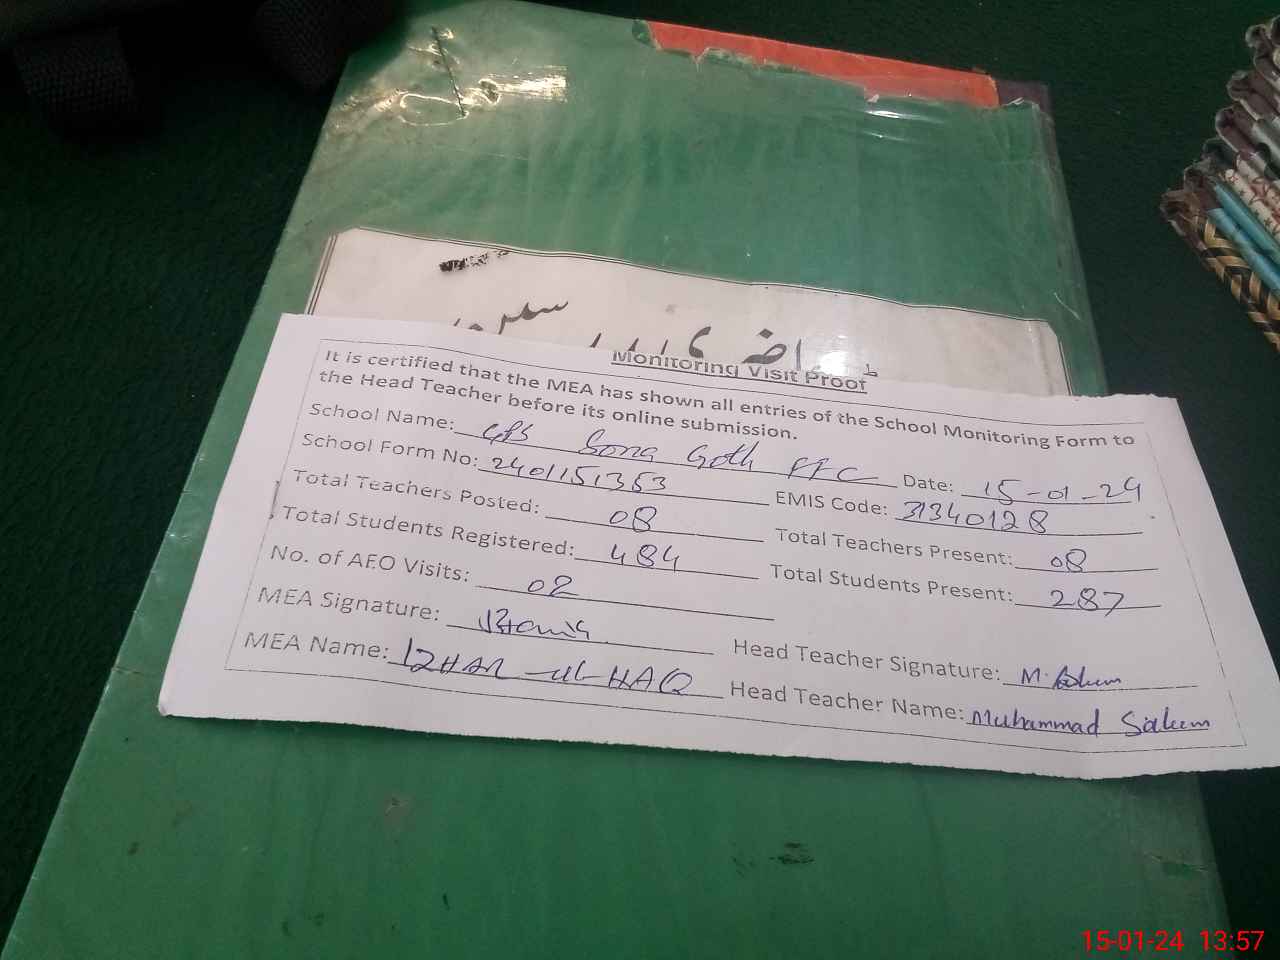 Monitoring Visit Proof
It is certified that the MEA has shown all entries of the School Monitoring Form to
the Head Teacher before its online submission.
School Name: GPS Sona Goth FFC Date: 15-01-24
School Form No: 2401151353 EMIS Code: 31340128
Total Teachers Posted: 08 Total Teachers Present: 08
Total Students Registered: 484 Total Students Present: 287
No. of AEO Visits: 02
MEA Signature: Head Teacher Signature: M.
MEA Name: IZHAR-ul-HAQ Head Teacher Name: Muhammad Saleem
15-01-24 13:57